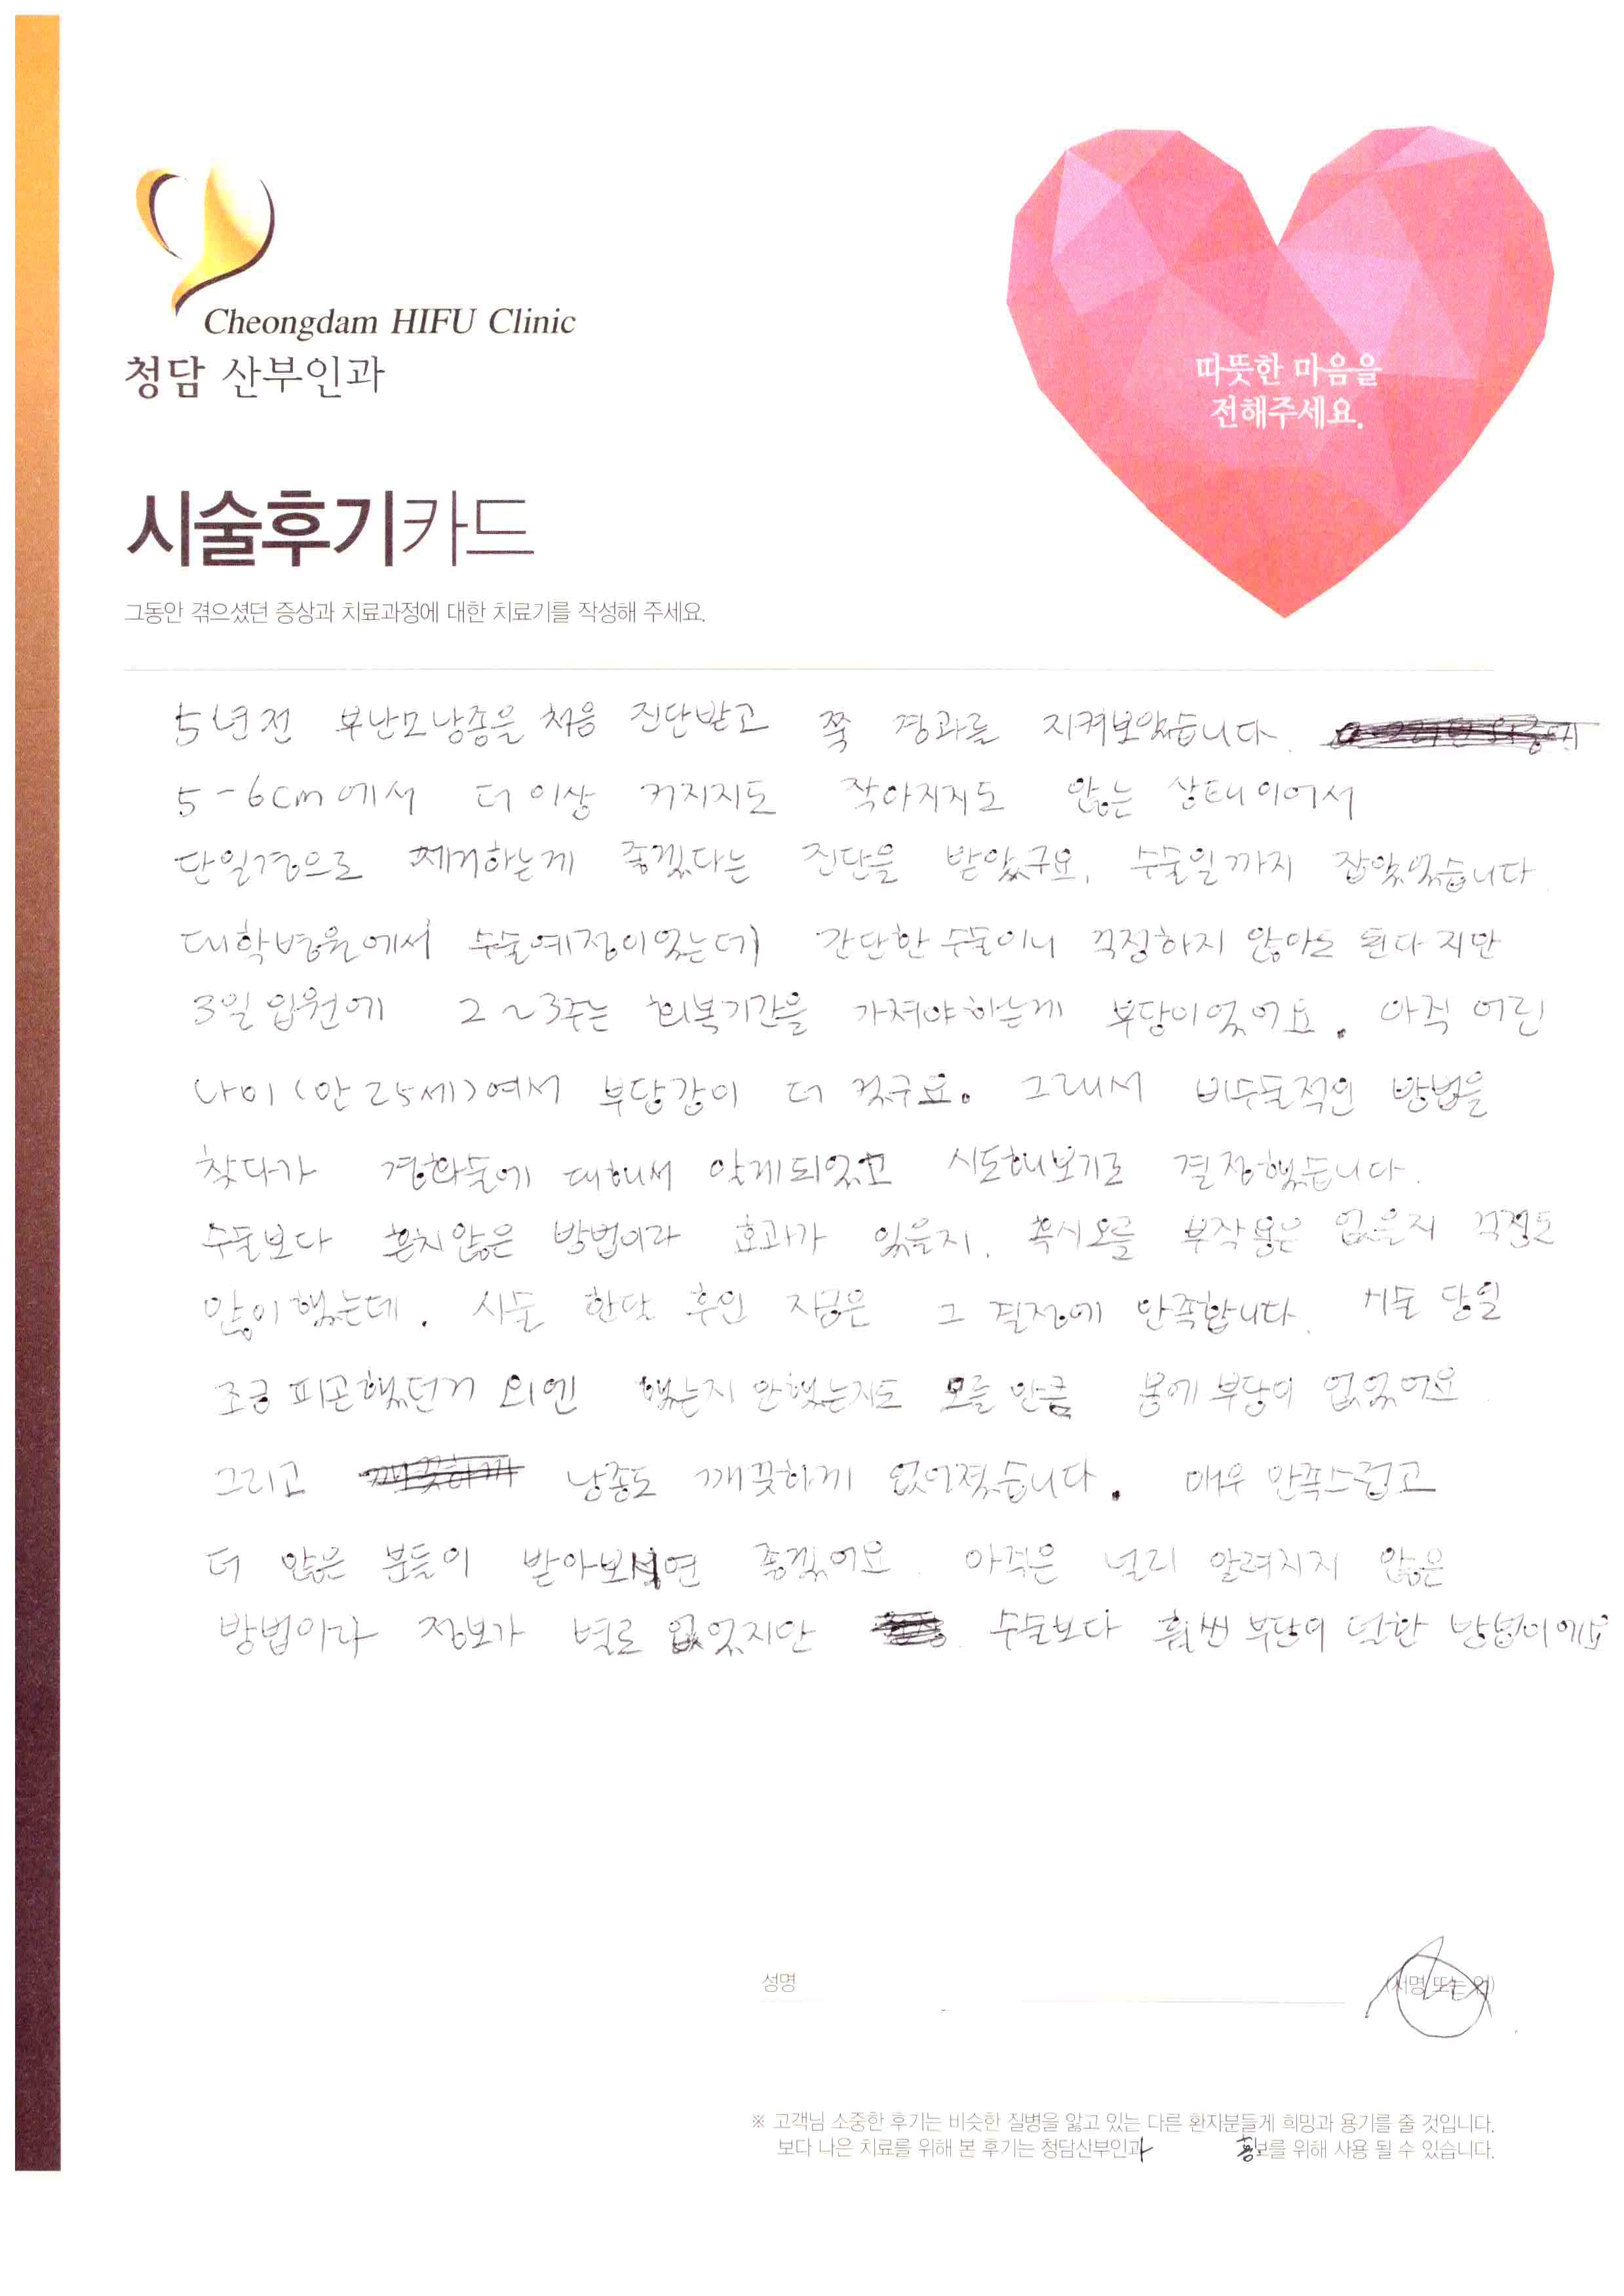 Cheongdam HIFU Clinic
청담 산부인과
따뜻한 마음을
전해주세요.
시술후기카드
그동안 겪으셨던 증상과 치료과정에 대한 치료기를 작성해 주세요.
5년전 부난모낭종을 처음 진단받고 쭉 경과를 지켜보았습니다.
5-6cm에서 더이상 커지지도 작아지지도 않는 상태이어서
단일경으로 제거하는게 좋겠다는 진단을 받았구요, 수술일까지 잡았었습니다.
대학병원에서 수술예정이었는데 간단한 수술이니 걱정하지 않아도 된다지만
3일 입원에 2~3주는 회복기간을 가져야하는게 부담이었어요. 아직 어린
나이(만 25세)여서 부담감이 더 컸구요. 그래서 비수술적인 방법을
찾다가 경화술에 대해서 알게되었고 시도해보기로 결정했습니다.
수술보다 흔치않은 방법이라 효과가 있을지, 혹시모를 부작용은 없을지 걱정도
많이했는데, 시술 한달 후인 지금은 그 결정에 만족합니다. 시술 당일
조금 피곤했던거 외엔 했는지 안했는지도 모를 만큼 몸에 부담이 없었어요.
그리고 낭종도 깨끗하게 없어졌습니다. 매우 만족스럽고
더 많은 분들이 받아보시면 좋겠어요. 아직은 널리 알려지지 않은
방법이라 정보가 별로 없었지만 수술보다 훨씬 부담이 덜한 방법이에요
성명 (서명 또는 인)
※ 고객님 소중한 후기는 비슷한 질병을 앓고 있는 다른 환자분들게 희망과 용기를 줄 것입니다.
보다 나은 치료를 위해 본 후기는 청담산부인과 홍보를 위해 사용 될 수 있습니다.